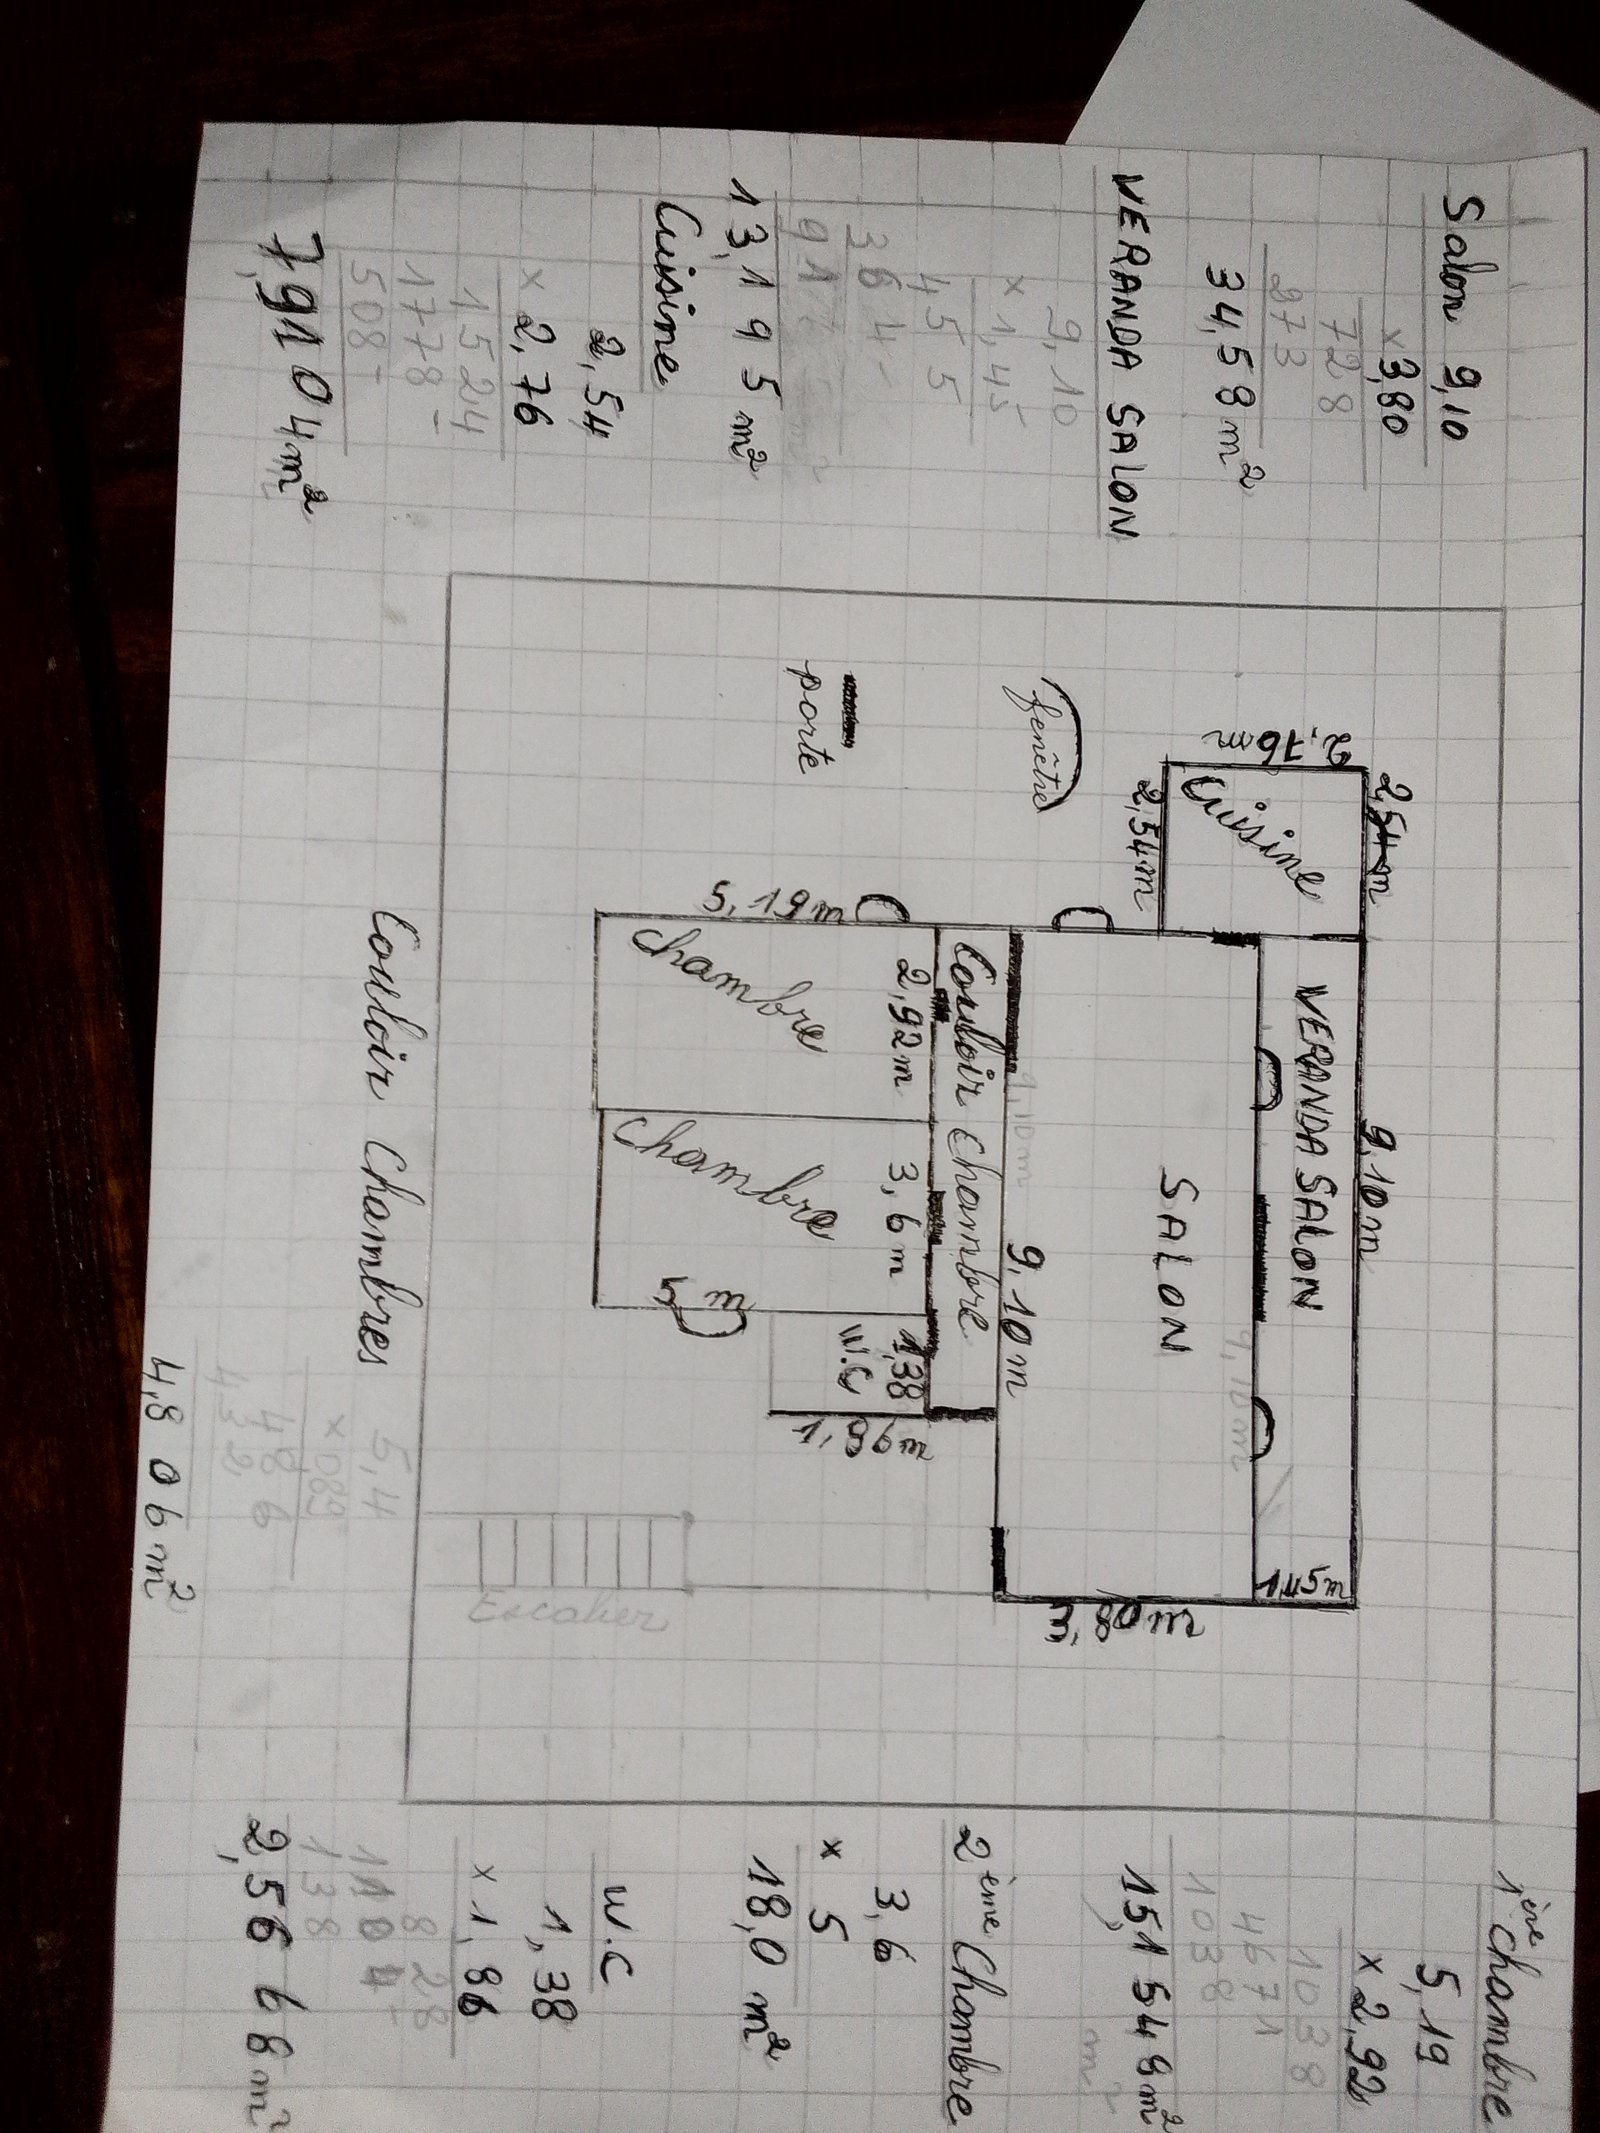 Salon 9,10
×3,80
728
273
34,58 m²
VERANDA SALON
9,10
×1,45
455
364-
91
13,195 m²
Cuisine
2,54
×2,76
1524
1778-
508-
7,9104 m²
2,54m
2,76m
Cuisine
2,54m
fenêtre
porte
9,10m
VERANDA SALON
1,45m
9,10m
SALON
3,80m
9,10m
9,10m
Couloir Chambre
5,19m
2,92m
Chambre
3,6m
Chambre
5m
1,38
W.C
Escalier
Couloir Chambres
5,4
×089
486
432
4,806 m²
1ère Chambre
5,19
×2,92
1038
4671
1038
15,1548 m²
m²
2ème Chambre
3,6
×5
18,0 m²
W.C
1,38
×1,86
828
1104-
138
2,5668 m²